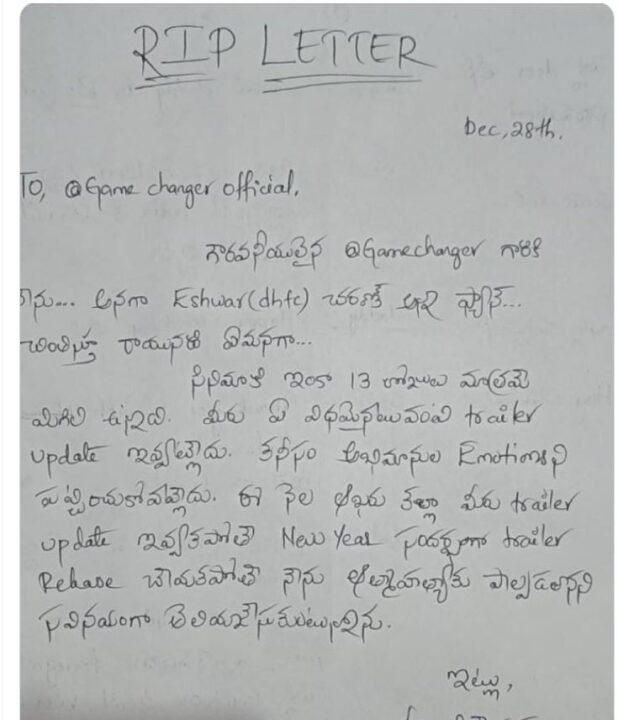 RIP LETTER
Dec, 28th.
To, @Game changer official,
గౌరవనీయులైన @Gamechanger గారికి
నేను... అనగా Eshwar(dhfc) చరణ్ అన్న ఫ్యాన్...
చింతిస్తూ రాయునది ఏమనగా...
సినిమాకి ఇంకా 13 రోజులు మాత్రమే
మిగిలి ఉన్నది. మీరు ఏ విధమైనటువంటి trailer
update ఇవ్వట్లేదు. కనీసం అభిమానుల Emotionsని
పట్టించుకోవట్లేదు. ఈ నెల ఆఖరు కల్లా మీరు trailer
update ఇవ్వకపోతే New Year సందర్భంగా trailer
Release చేయకపోతే నేను ఆత్మహత్యకు పాల్పడతానని
సవినయంగా తెలియజేసుకుంటున్నాను.
ఇట్లు,